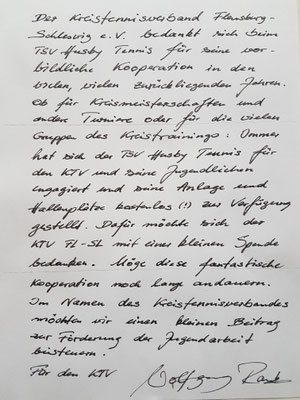 Der Kreistennisverband Flensburg-
Schleswig e.V. bedankt sich beim
TSV Husby Tennis für seine vor-
bildliche Kooperation in den
vielen, vielen zurückliegenden Jahren.
Ob für Kreismeisterschaften und
andere Turniere oder für die vielen
Gruppen des Kreistrainings: Immer
hat sich der TSV Husby Tennis für
den KTV und seine Jugendlichen
engagiert und seine Anlage und
Hallenplätze kostenlos (!) zur Verfügung
gestellt. Dafür möchte sich der
KTV FL-SL mit einer kleinen Spende
bedanken. Möge diese fantastische
Kooperation noch lange andauern.
Im Namen des Kreistennisverbandes
möchten wir einen kleinen Beitrag
zur Förderung der Jugendarbeit
beisteuern.
Für den KTV Wolfgang